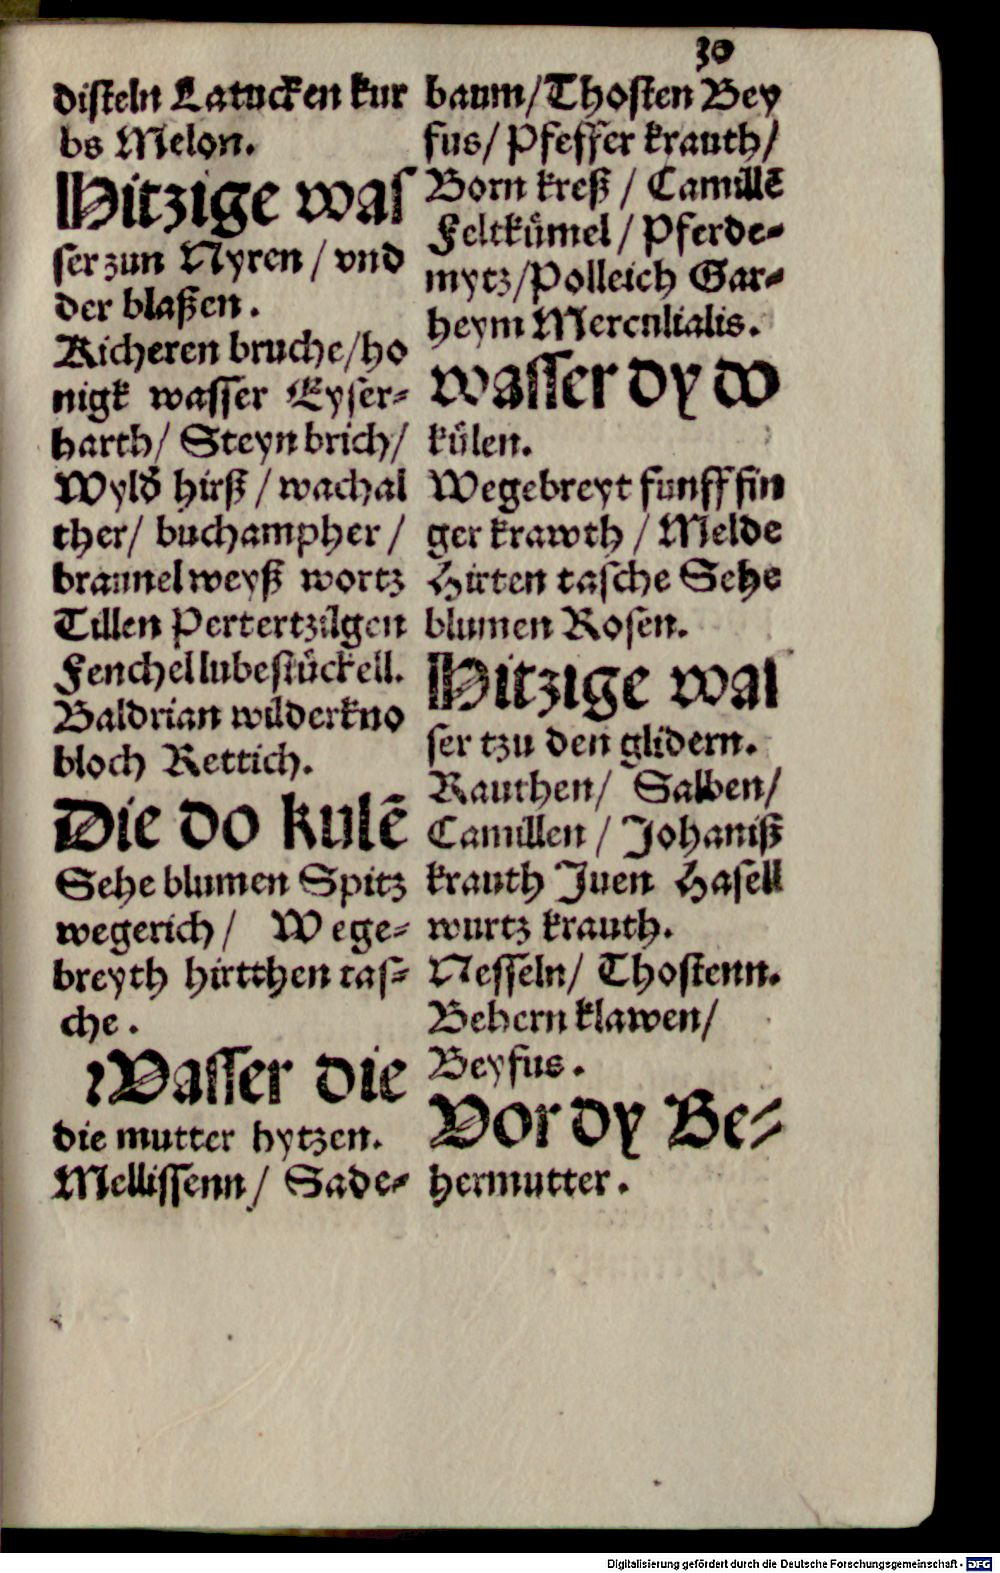 30
disteln Latucken kur
bs Melon.
Hitzige was
ser zun Nyren / vnd
der blaßen.
Kicheren bruche/ho
nigk wasser Eyser-
harth/ Steyn brich/
Wyld hirß / wachal
ther/ buchampher /
braunel weyß wortz
Tillen Pertertzilgen
Fenchel lubestückell.
Baldrian wilderkno
bloch Rettich.
Die do kulē
Sehe blumen Spitz
wegerich / Wege-
breyth hirtthen tas-
che.
Wasser die
die mutter hytzen.
Mellissenn / Sade-
baum/Thosten Bey
fus/ Pfeffer krauth/
Born kreß / Camillē
Feltkümel / Pferde-
mytz/Polleich Gar-
heym Mercnlialis.
wasser dy do
külen.
Wegebreyt funff fin
ger krawth / Melde
Hirten tasche Sehe
blumen Rosen.
Hitzige was
ser tzu den glidern.
Rauthen/ Salben/
Camillen / Johaniß
krauth Juen Hasell
wurtz krauth.
Nesseln/ Thostenn.
Behern klawen/
Beyfus.
Vor dy Be-
hermutter.
Digitalisierung gefördert durch die Deutsche Forschungsgemeinschaft - DFG